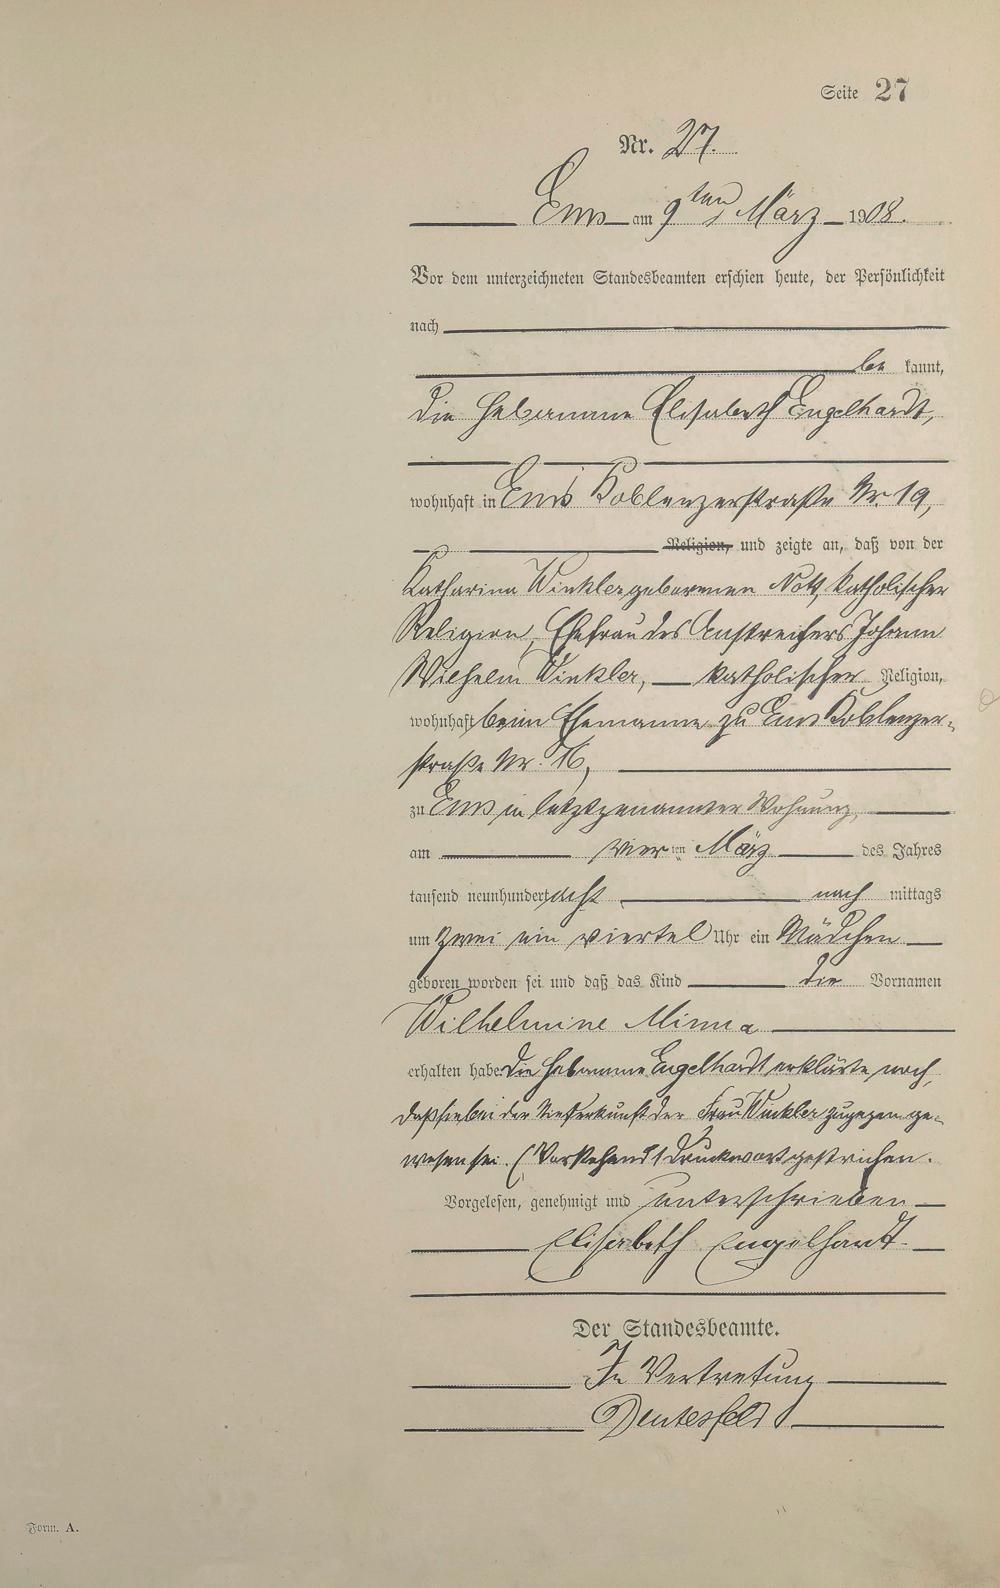 Seite 27
Nr. 27.
Ems am 9ten März 1908.
Vor dem unterzeichneten Standesbeamten erschien heute, der Persönlichkeit
nach
be kannt,
die Hebamme Elisabeth Engelhardt,
wohnhaft in Ems Koblenzerstraße Nr. 19,
Religion, und zeigte an, daß von der
Katharina Winkler geborenen Nott, katholischer
Religion, Ehefrau des Anstreichers Johann
Wilhelm Winkler, katholischer Religion,
wohnhaft beim Ehemanne zu Ems Koblenzer-
straße Nr. 16,
zu Ems in letztgenannter Wohnung,
am vier ten März des Jahres
tausend neunhundert acht nach mittags
um zwei ein viertel Uhr ein Mädchen
geboren worden sei und daß das Kind die Vornamen
Wilhelmine Minna
erhalten habe Die Hebamme Engelhardt erklärte noch,
daß sie bei der Niederkunft der Frau Winkler zugegen ge-
wesen sei. (Vorstehend 1 Druckwort gestrichen.
Vorgelesen, genehmigt und unterschrieben
Elisabeth Engelhardt.
Der Standesbeamte.
In Vertretung
Form. A.